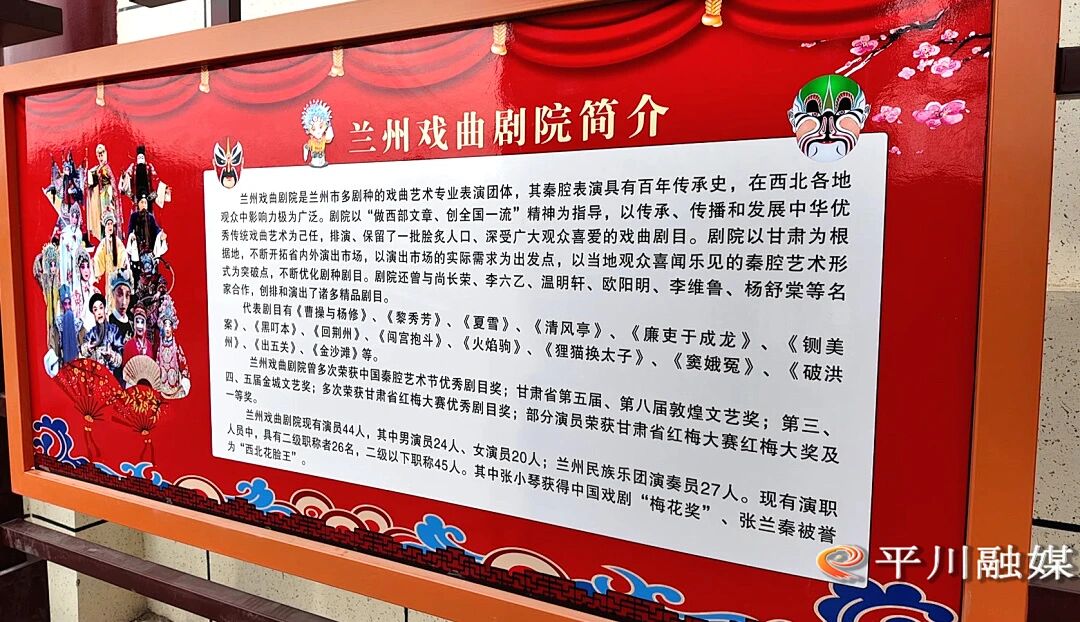 兰州戏曲剧院简介
兰州戏曲剧院是兰州市多剧种的戏曲艺术专业表演团体，其秦腔表演具有百年传承史，在西北各地
观众中影响力极为广泛。剧院以“做西部文章、创全国一流”精神为指导，以传承、传播和发展中华优
秀传统戏曲艺术为己任，排演、保留了一批脍炙人口、深受广大观众喜爱的戏曲剧目。剧院以甘肃为根
据地，不断开拓省内外演出市场，以演出市场的实际需求为出发点，以当地观众喜闻乐见的秦腔艺术形
式为突破点，不断优化剧种剧目。剧院还曾与尚长荣、李六乙、温明轩、欧阳明、李维鲁、杨舒棠等名
家合作，创排和演出了诸多精品剧目。
代表剧目有《曹操与杨修》、《黎秀芳》、《夏雪》、《清风亭》、《廉吏于成龙》、《铡美
案》、《黑叮本》、《回荆州》、《闯宫抱斗》、《火焰驹》、《狸猫换太子》、《窦娥冤》、《破洪
州》、《出五关》、《金沙滩》等。
兰州戏曲剧院曾多次荣获中国秦腔艺术节优秀剧目奖；甘肃省第五届、第八届敦煌文艺奖；第三、
四、五届金城文艺奖；多次荣获甘肃省红梅大赛优秀剧目奖；部分演员荣获甘肃省红梅大赛红梅大奖及
一等奖。
兰州戏曲剧院现有演员44人，其中男演员24人、女演员20人；兰州民族乐团演奏员27人。现有演职
人员中，具有二级职称者26名，二级以下职称45人。其中张小琴获得中国戏剧“梅花奖”、张兰秦被誉
为“西北花脸王”。
平川融媒